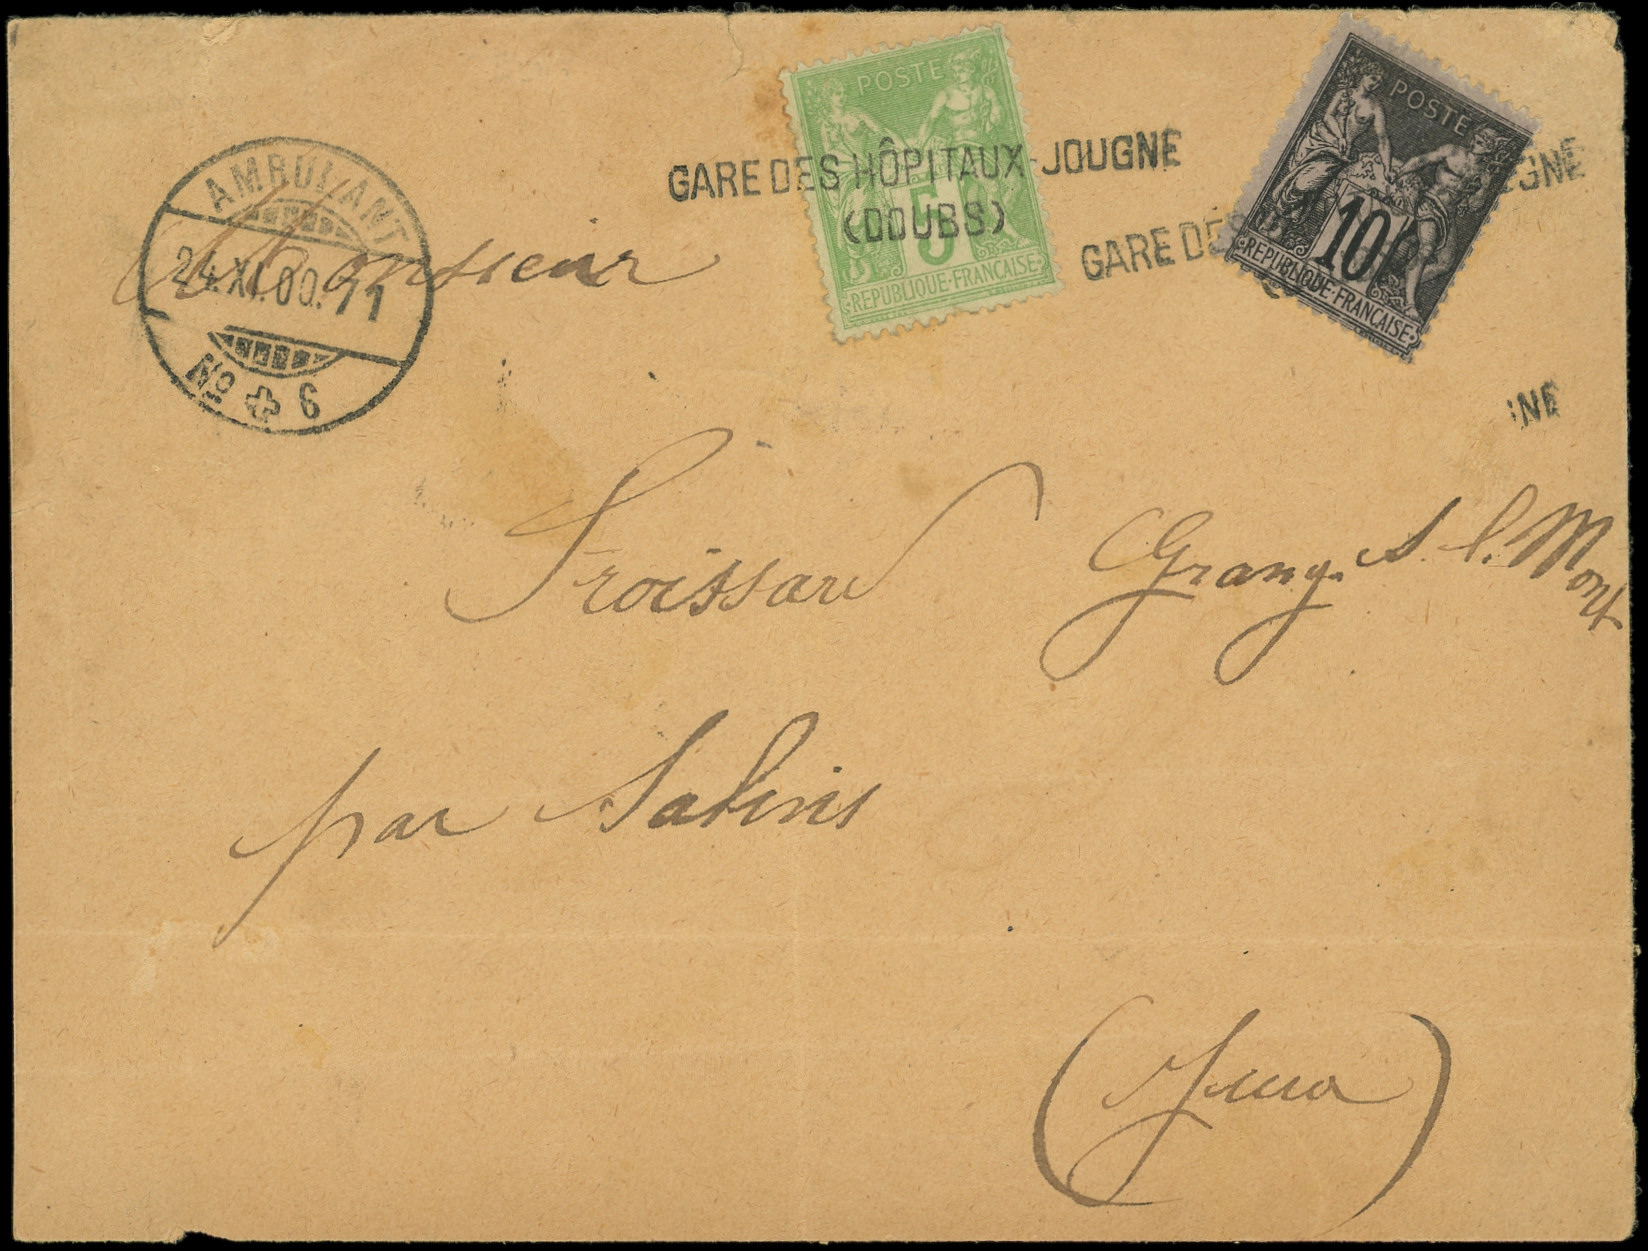 POSTE
5
REPUBLIQUE·FRANCAISE
POSTE
10
REPUBLIQUE·FRANCAISE
GARE DES HÔPITAUX-JOUGNE
(DOUBS)
GARE DES GNE
NE
AMBULANT
24.XI.00. 11
No 6
Monsieur
Froissard Grang. s. l. Mont
par Salins
(Jura)